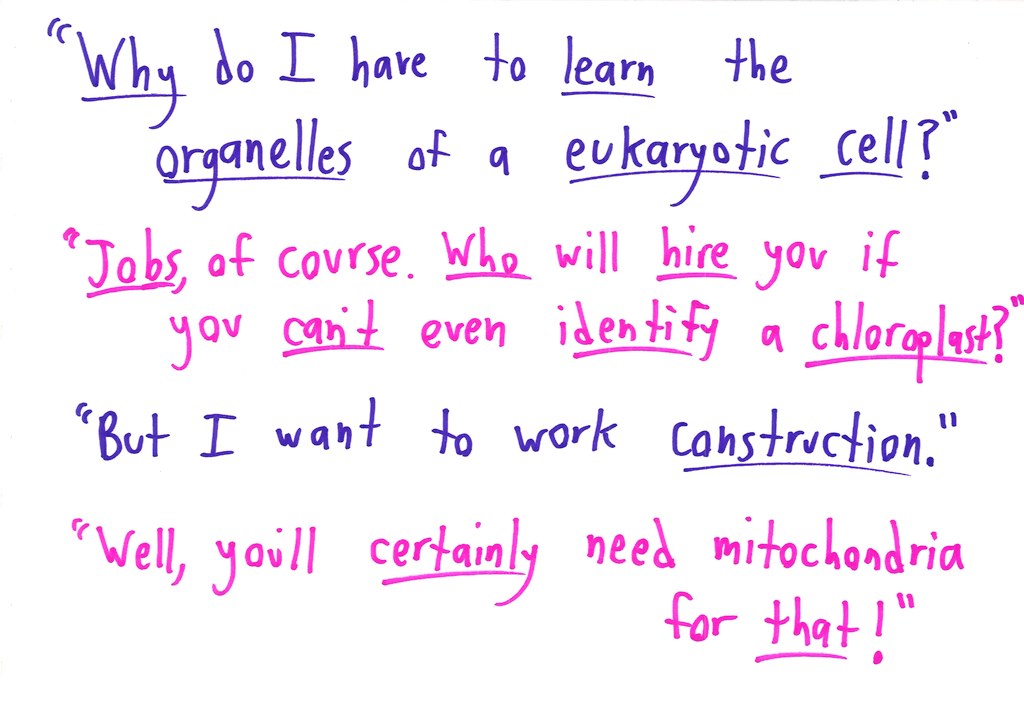 "Why do I have to learn the
organelles of a eukaryotic cell?"
"Jobs, of course. Who will hire you if
you can't even identify a chloroplast?"
"But I want to work construction."
"Well, you'll certainly need mitochondria
for that!"